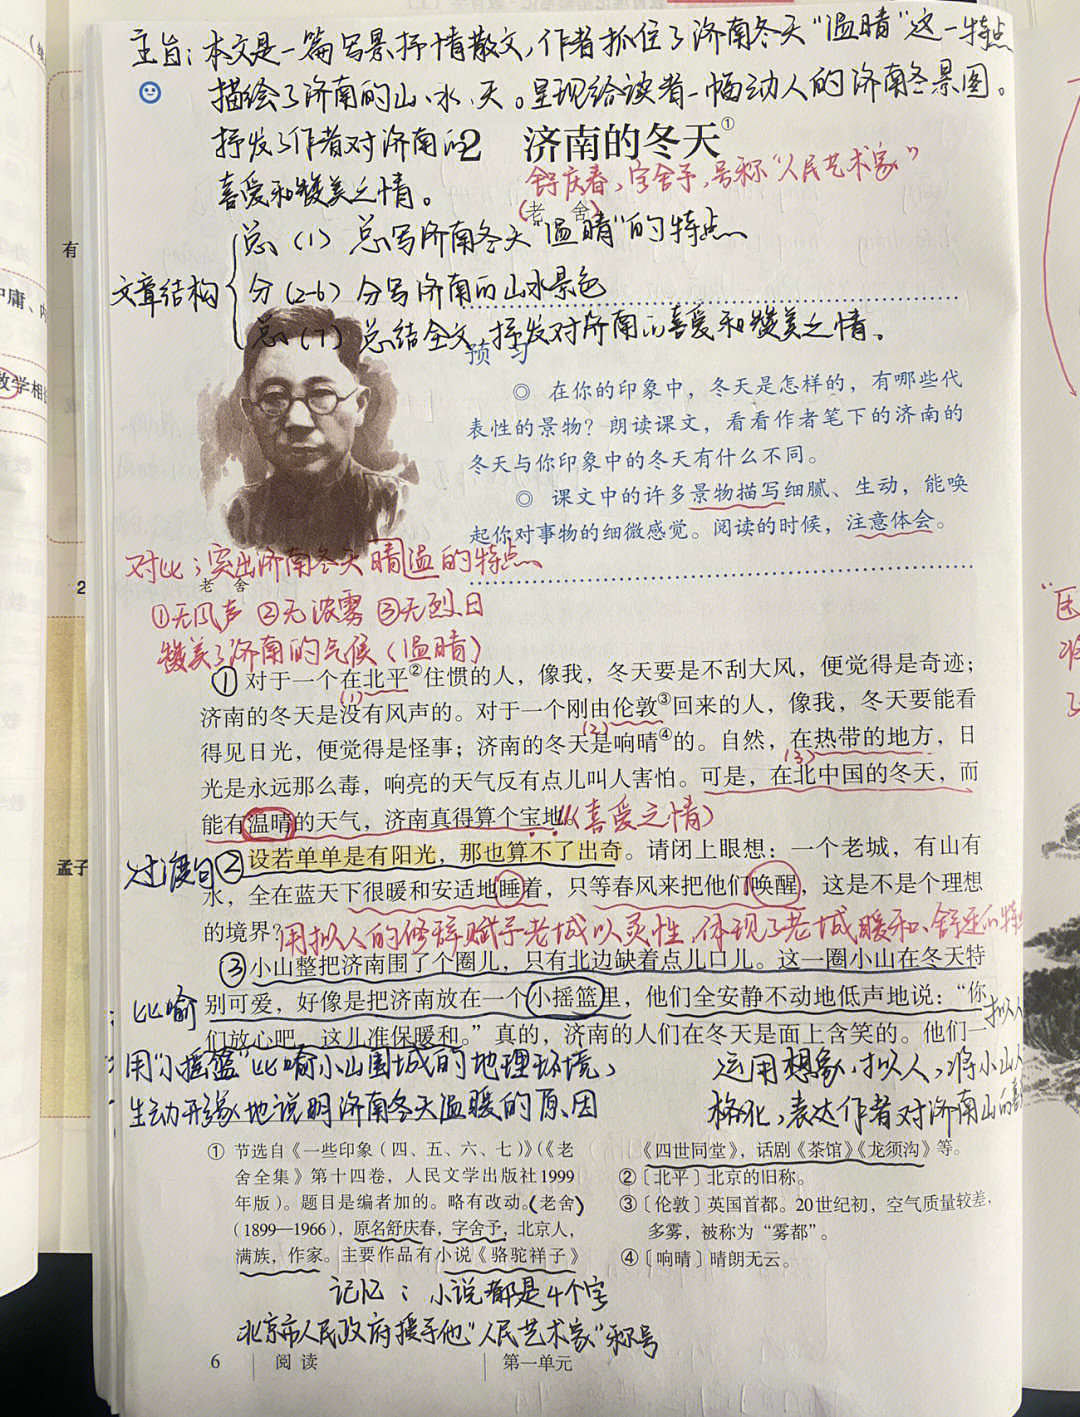 主旨：本文是一篇写景抒情散文，作者抓住了济南冬天“温晴”这一特点
描绘了济南的山、水、天。呈现给读者一幅动人的济南冬景图。
抒发了作者对济南的
喜爱和赞美之情。
2 济南的冬天①
舒庆春，字舍予，号称“人民艺术家”
（老 舍）
文章结构
总（1）总写济南冬天“温晴”的特点
分（2-6）分写济南的山水景色
总（7）总结全文，抒发对济南的喜爱和赞美之情。
预 习
◎ 在你的印象中，冬天是怎样的，有哪些代
表性的景物？朗读课文，看看作者笔下的济南的
冬天与你印象中的冬天有什么不同。
◎ 课文中的许多景物描写细腻、生动，能唤
起你对事物的细微感觉。阅读的时候，注意体会。
对比：突出济南冬天晴温的特点
老 舍
①无风声 ②无浓雾 ③无烈日
赞美了济南的气候（温晴）
① 对于一个在北平②住惯的人，像我，冬天要是不刮大风，便觉得是奇迹；
(1)
济南的冬天是没有风声的。对于一个刚由伦敦③回来的人，像我，冬天要能看
(2)
得见日光，便觉得是怪事；济南的冬天是响晴④的。自然，在热带的地方，日
(3)
光是永远那么毒，响亮的天气反有点儿叫人害怕。可是，在北中国的冬天，而
能有温晴的天气，济南真得算个宝地。（喜爱之情）
过渡句
② 设若单单是有阳光，那也算不了出奇。请闭上眼想：一个老城，有山有
水，全在蓝天下很暖和安适地睡着，只等春风来把他们唤醒，这是不是个理想
的境界？
用拟人的修辞赋予老城以灵性，体现了老城暖和、舒适的特
③ 小山整把济南围了个圈儿，只有北边缺着点儿口儿。这一圈小山在冬天特
比喻
别可爱，好像是把济南放在一个小摇篮里，他们全安静不动地低声地说：“你
拟人
们放心吧，这儿准保暖和。”真的，济南的人们在冬天是面上含笑的。他们一
用“小摇篮”比喻小山围城的地理环境，
生动形象地说明济南冬天温暖的原因
运用想象、拟人，将小山人
格化，表达作者对济南山的喜
① 节选自《一些印象（四、五、六、七）》（《老
舍全集》第十四卷，人民文学出版社1999
年版）。题目是编者加的。略有改动。（老舍）
（1899—1966），原名舒庆春，字舍予，北京人，
满族，作家。主要作品有小说《骆驼祥子》
《四世同堂》，话剧《茶馆》《龙须沟》等。
②〔北平〕北京的旧称。
③〔伦敦〕英国首都。20世纪初，空气质量较差，
多雾，被称为“雾都”。
④〔响晴〕晴朗无云。
记忆：小说都是4个字
北京市人民政府授予他“人民艺术家”称号
6 阅读 第一单元
有
中庸、
教学相
2
孟子